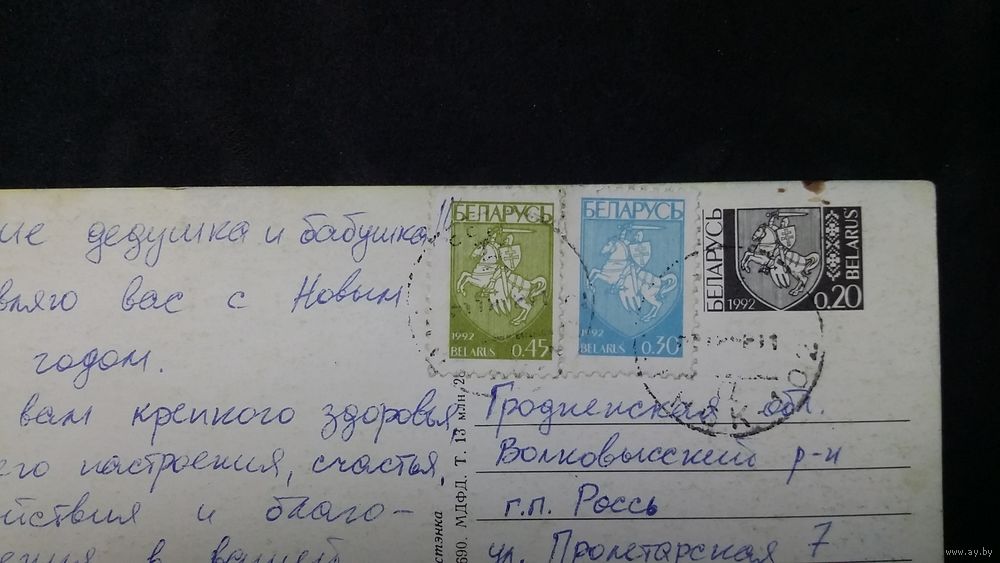 дедушка и бабушка!!
вас с Новым
годом.
вам крепкого здоровья,
настроения, счастья,
и благо-
в вашей
БЕЛАРУСЬ
1992
BELARUS 0.45
БЕЛАРУСЬ
1992
BELARUS 0.30
БЕЛАРУСЬ
1992
BELARUS
0.20
Гродненская обл.
Волковысский р-н
г.п. Россь
ул. Пролетарская 7
690. МДФД. Т. 13 млн.
www.ay.by